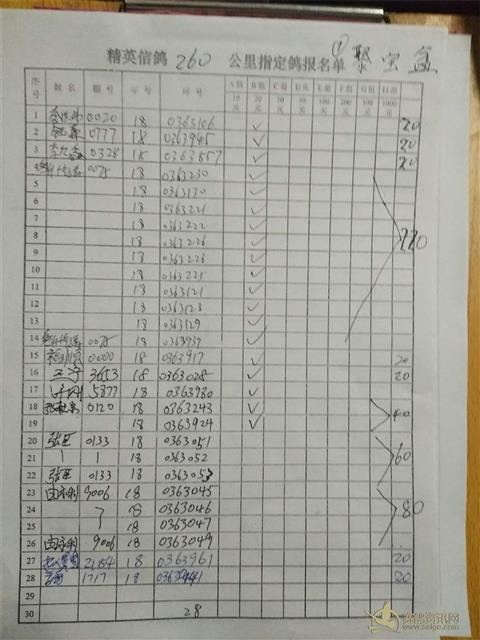 ①
精英信鸽 260 公里指定鸽报名单 聚宝盆
序号 姓名 棚号 年号 环号 A组10元 B组20元 C组30元 D组50元 E组100元 F组200元 G组500元 H组1000元
1 0020 18 0363106 ✓ 20
2 0777 18 0363945 ✓ 20
3 0328 18 0363857 ✓ 20
4 0075 18 0363230 ✓
5 18 0363130 ✓
6 18 0363221 ✓
7 18 0363222 ✓
8 18 0363226 ✓ 220
9 18 0363228 ✓
10 18 0363225 ✓
11 18 0363121 ✓
12 18 0363128 ✓
13 18 0363129 ✓
14 0075 18 0363937 ✓
15 0000 18 0363917 ✓ 20
16 王宁 3653 18 0363028 ✓ 20
17 5877 18 0363980 ✓
18 0120 18 0363243 ✓ 40
19 18 0363924 ✓
20 张臣 0133 18 0363051
21 18 0363052 60
22 张臣 0133 18 0363053
23 由永利 9006 18 0363045
24 18 0363046 80
25 18 0363047
26 由永利 9006 18 0363049
27 2184 18 0363961 20
28 1717 18 20
29
30 28
赛鸽资讯网
www.saige.com